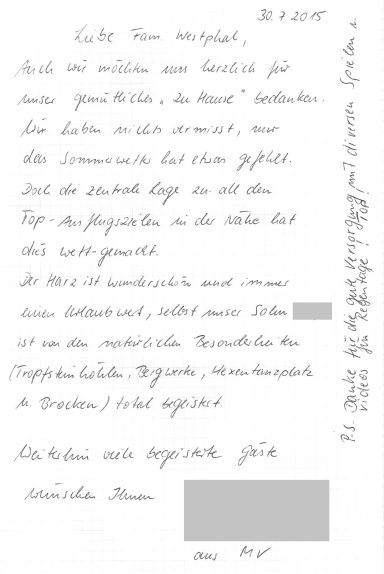 30.7.2015
Liebe Fam. Westphal,
Auch wir möchten uns herzlich für
unser gemütliches „zu Hause“ bedanken.
Wir haben nichts vermisst, nur
das Sommerwetter hat etwas gefehlt.
Doch die zentrale Lage zu all den
Top-Ausflugszielen in der Nähe hat
dies wett-gemacht.
Der Harz ist wunderschön und immer
einen Urlaub wert, selbst unser Sohn
ist von den natürlichen Besonderheiten
(Tropfsteinhöhlen, Bergwerke, Hexentanzplatz
u. Brocken) total begeistert.
Weiterhin viele begeisterte Gäste
wünschen Ihnen
aus MV
P.S. Danke für die gute Versorgung mit diversen Spielen u.
Videos für Regentage! Top!